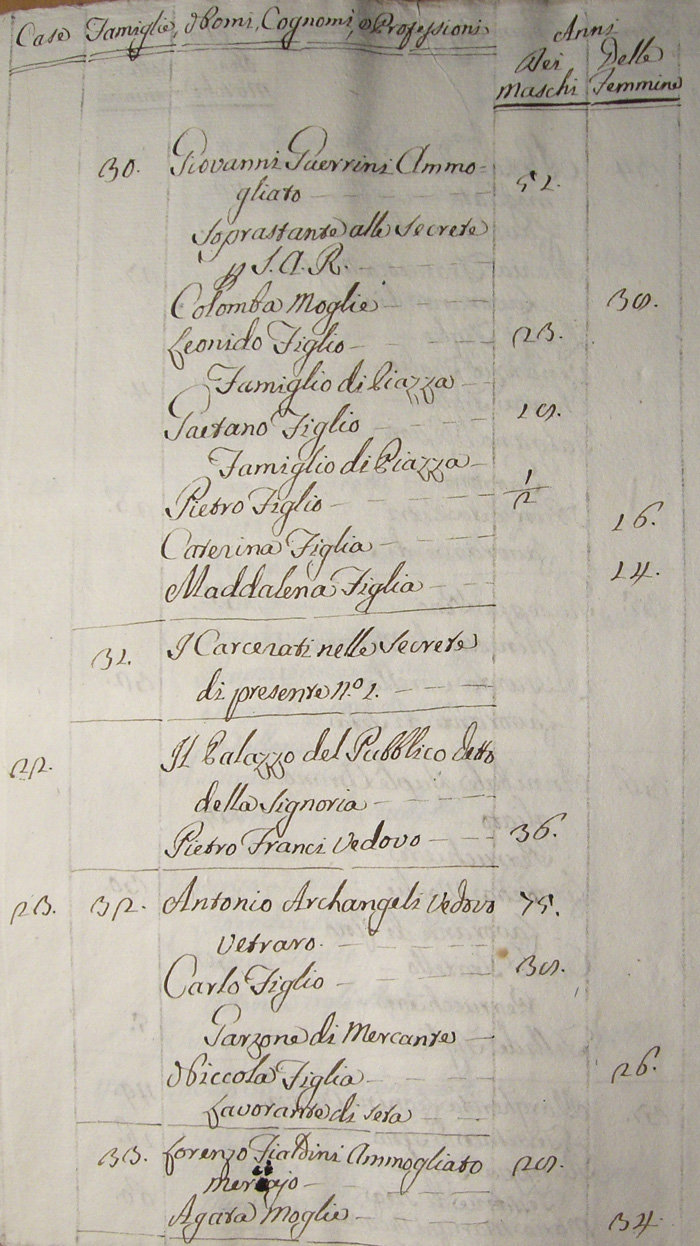 Case Famiglie, Nomi, Cognomi, e Professioni Anni
Dei Delle
Maschi Femmine
30. Giovanni Guerrini Ammo=
gliato 51.
Soprastante alle Secrete
p S. A. R.
Colomba Moglie
Leonido Figlio 23.
Famiglio di Piazza
Gaetano Figlio
Famiglio di Piazza
Pietro Figlio 1/2
Caterina Figlia 16.
Maddalena Figlia 14.
31. I Carcerati nelle Secrete
di presente n.º 1.
22. Il Palazzo del Pubblico detto
della Signoria
Pietro Franci Vedovo 36.
23. 32. Antonio Archangeli Vedovo 75.
Vetraro.
Carlo Figlio
Garzone di Mercante
Niccola Figlia 26.
Lavorante di seta
33. Lorenzo Fialdini Ammogliato
Agata Moglie 34